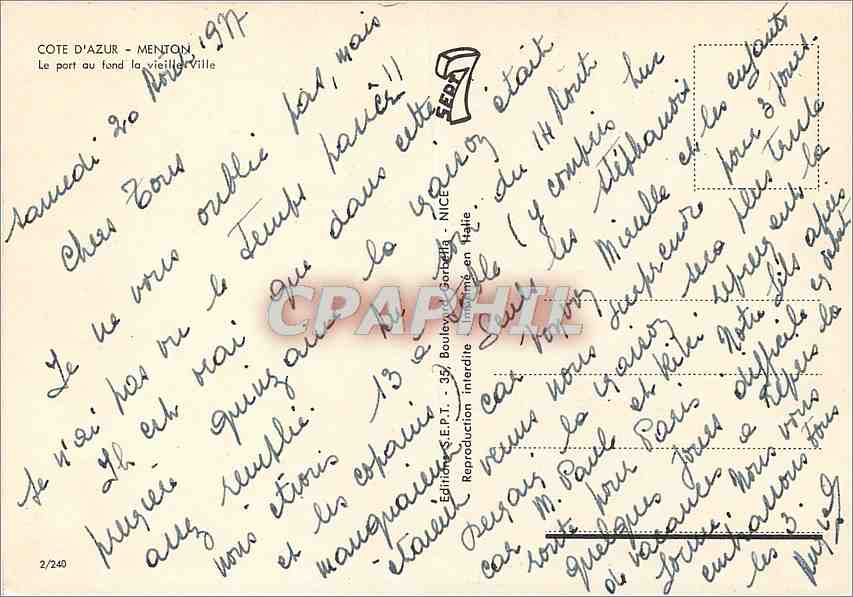 COTE D'AZUR - MENTON
Le port au fond la vieille Ville
SEPT
7
Samedi 20 Août 1977
Chers Tous
Je ne vous oublie pas, mais
je n'ai pas vu le temps passer!!
Il est vrai que dans cette
première quinzaine la maison était
assez remplie.
nous étions 13 à table du 14 Août
et les copains (y compris Luc
manquaient) seuls les stéphanois
car Mireille et les enfants
étaient venus nous surprendre pour 3 jours.
la maison sera plus triste
car M. Paule et Kiki reprennent la
route pour Paris. Notre fils après
quelques jours difficiles en début
de vacances a repris la
forme. Nous vous
embrassons tous
les 3.
Editions S.E.P.T. - 35, Boulevard Gorbella - NICE
Reproduction interdite Imprimé en Italie
CPAPHIL
2/240